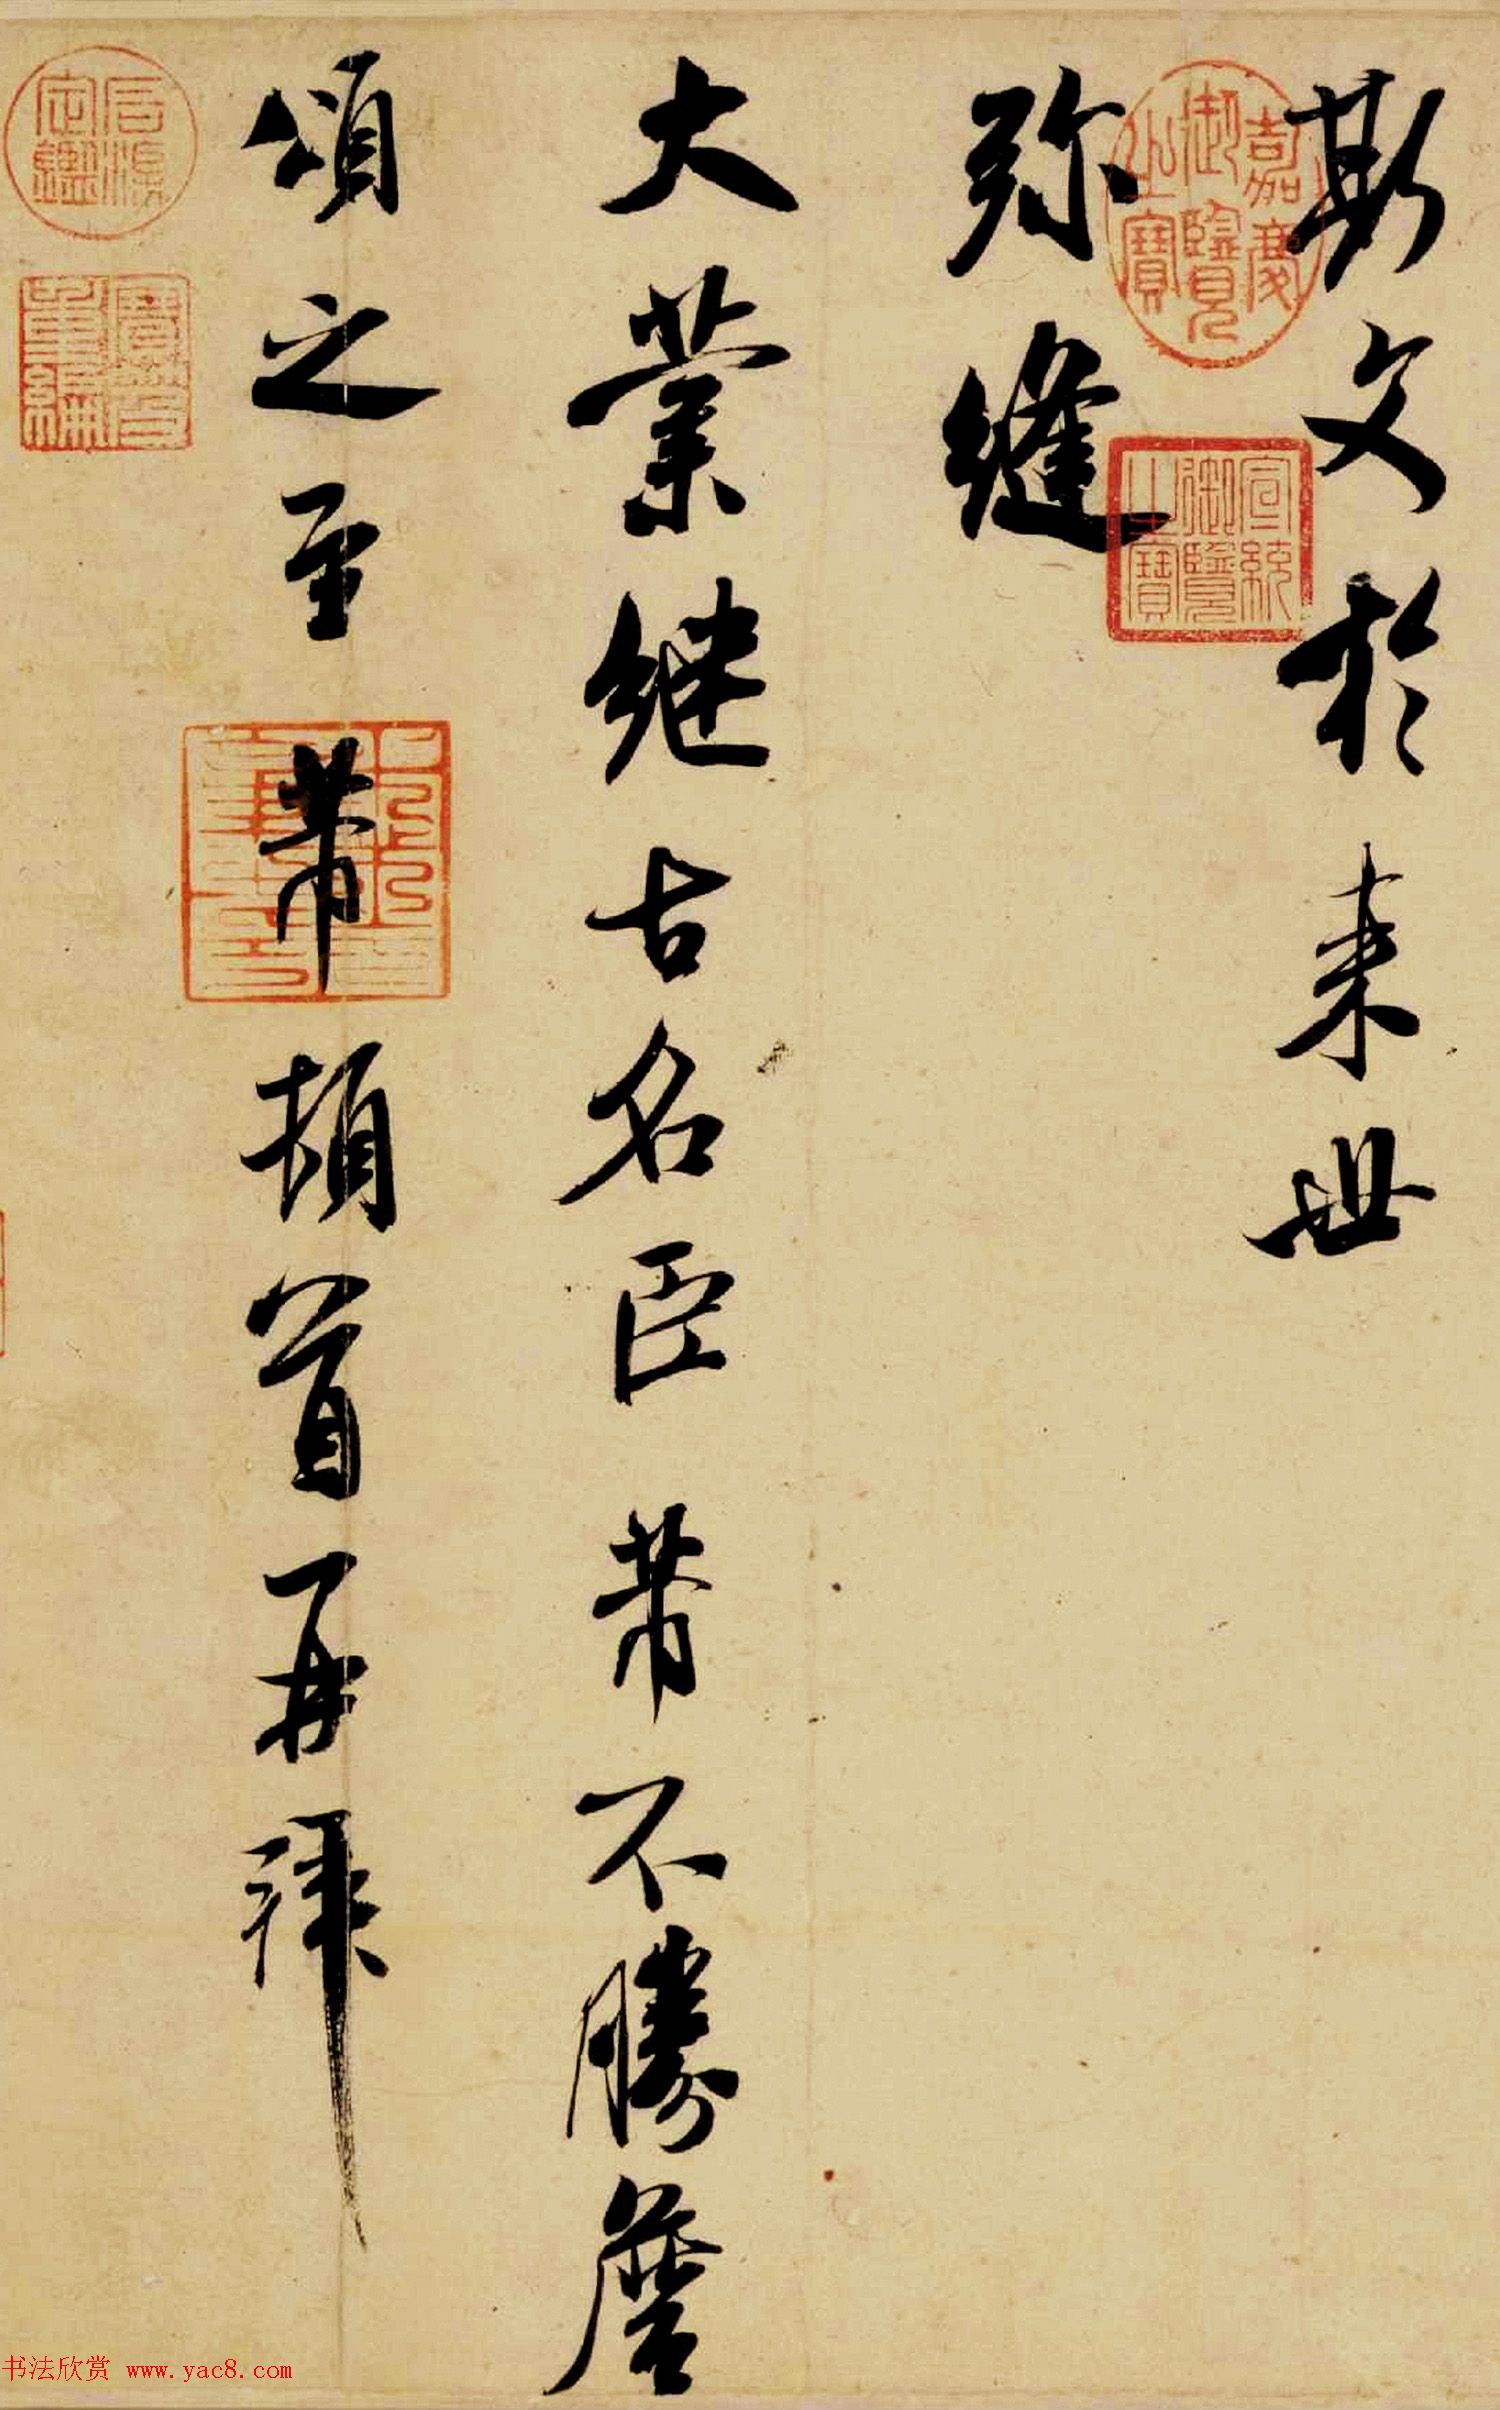 斯文於来世
弥缝
大業継古名臣芾不勝詹
頌之至芾頓首再拜
嘉慶御覽之寶
宣統御覽之寶
石渠定鑑
寶笈重編
书法欣赏 www.yac8.com